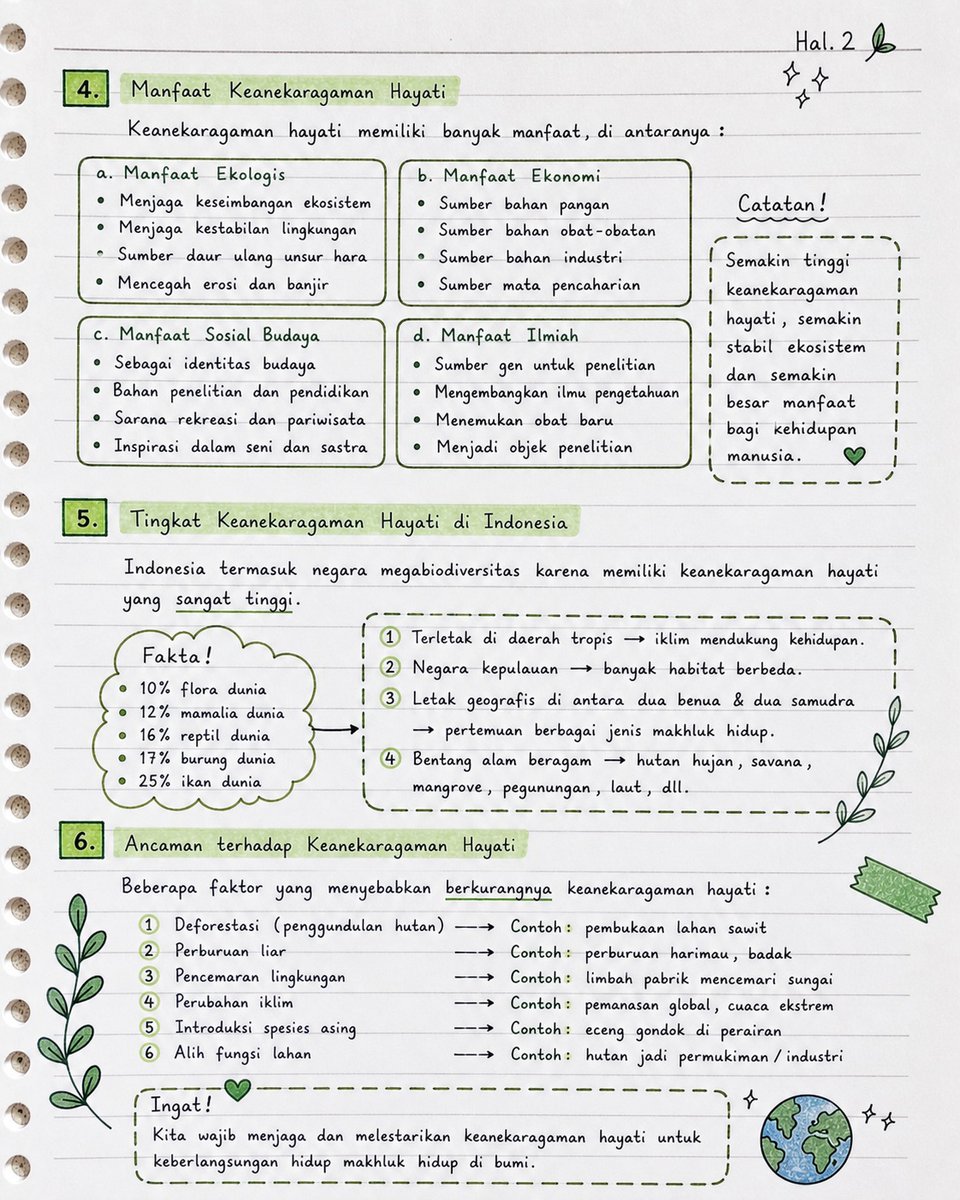 Hal. 2
4. Manfaat Keanekaragaman Hayati
Keanekaragaman hayati memiliki banyak manfaat, di antaranya :
a. Manfaat Ekologis
• Menjaga keseimbangan ekosistem
• Menjaga kestabilan lingkungan
• Sumber daur ulang unsur hara
• Mencegah erosi dan banjir
b. Manfaat Ekonomi
• Sumber bahan pangan
• Sumber bahan obat-obatan
• Sumber bahan industri
• Sumber mata pencaharian
c. Manfaat Sosial Budaya
• Sebagai identitas budaya
• Bahan penelitian dan pendidikan
• Sarana rekreasi dan pariwisata
• Inspirasi dalam seni dan sastra
d. Manfaat Ilmiah
• Sumber gen untuk penelitian
• Mengembangkan ilmu pengetahuan
• Menemukan obat baru
• Menjadi objek penelitian
Catatan!
Semakin tinggi
keanekaragaman
hayati, semakin
stabil ekosistem
dan semakin
besar manfaat
bagi kehidupan
manusia.
5. Tingkat Keanekaragaman Hayati di Indonesia
Indonesia termasuk negara megabiodiversitas karena memiliki keanekaragaman hayati
yang sangat tinggi.
Fakta!
• 10% flora dunia
• 12% mamalia dunia
• 16% reptil dunia
• 17% burung dunia
• 25% ikan dunia
1 Terletak di daerah tropis → iklim mendukung kehidupan.
2 Negara kepulauan → banyak habitat berbeda.
3 Letak geografis di antara dua benua & dua samudra
→ pertemuan berbagai jenis makhluk hidup.
4 Bentang alam beragam → hutan hujan, savana,
mangrove, pegunungan, laut, dll.
6. Ancaman terhadap Keanekaragaman Hayati
Beberapa faktor yang menyebabkan berkurangnya keanekaragaman hayati :
1 Deforestasi (penggundulan hutan) → Contoh : pembukaan lahan sawit
2 Perburuan liar → Contoh : perburuan harimau, badak
3 Pencemaran lingkungan → Contoh : limbah pabrik mencemari sungai
4 Perubahan iklim → Contoh : pemanasan global, cuaca ekstrem
5 Introduksi spesies asing → Contoh : eceng gondok di perairan
6 Alih fungsi lahan → Contoh : hutan jadi permukiman / industri
Ingat!
Kita wajib menjaga dan melestarikan keanekaragaman hayati untuk
keberlangsungan hidup makhluk hidup di bumi.